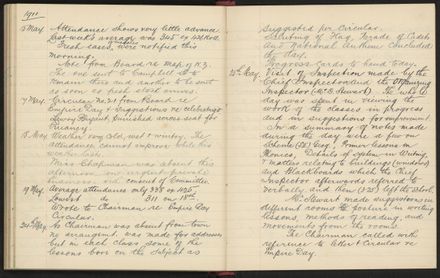 1911
5 May. Attendance shows very little advance
Last week's average was 345 on 424 Roll.
Fresh cases were notified this
morning.
Note from Board re Map of N.Z.
The one sent to Campbell St to
be sent there and another to be sent
as soon as fresh stock arrives.
7 May. Circular No 21 from Board re
Empire Day & suggestions re celebrating
15 May. Weather very cold, wet & wintry. The
attendance cannot improve while this
Miss Chapman was absent this
afternoon on urgent private
business with consent of Committee.
19 May. Average attendance only 338 on 425
Lowest do 311 on 18th
Wrote to Chairman re Empire Day
Circular.
24 May. As Chairman was absent from town
no arrangemt was made for addresses
but in each class some of the
lessons bore on the subject as
suggested per Circular.
Saluting of Flag, Parade of Cadets
and National Anthem concluded
the day.
Progress Cards to hand today.
25th May. Visit of Inspection made by the
Chief Inspector and the
Inspector (Mr. Stewart). The whole
day was spent in viewing the
work of the classes in progress
and in suggestions for improvement.
In a summary of notes made
during the day were a few on
Scheme Primer lessons in
Phonics, Details of system in Writing,
& matters relating to buildings (windows)
and Blackboards which the Chief
Inspector afterwards referred to
verbally and then left the School.
Mr Stewart made suggestions in
different rooms re posture in writing
lessons, methods of reading, and
movements from the rooms.
The Chairman called with
reference to letter & Circular re
Empire Day.